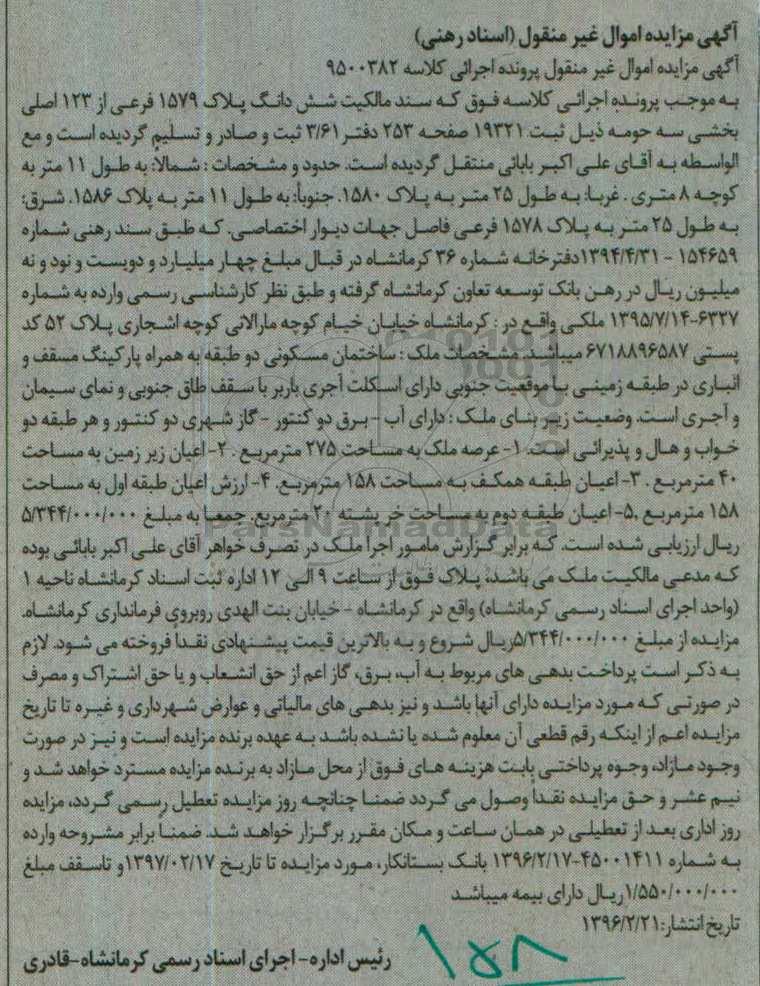 آگهی مزایده اموال غیر منقول (اسناد رهنی)
آگهی مزایده اموال غیر منقول پرونده اجرائی کلاسه ۹۵۰۰۳۸۲
به موجب پرونده اجرائی کلاسه فوق که سند مالکیت شش دانگ پلاک ۱۵۷۹ فرعی از ۱۲۳ اصلی
بخشی سه حومه ذیل ثبت ۱۹۳۲۱ صفحه ۲۵۳ دفتر ۳/۶۱ ثبت و صادر و تسلیم گردیده است و مع
الواسطه به آقای علی اکبر بابائی منتقل گردیده است. حدود و مشخصات : شمالا: به طول ۱۱ متر به
کوچه ۸ متری . غربا: به طول ۲۵ متر به پلاک ۱۵۸۰. جنوبا: به طول ۱۱ متر به پلاک ۱۵۸۶. شرق:
به طول ۲۵ متر به پلاک ۱۵۷۸ فرعی فاصل جهات دیوار اختصاصی. که طبق سند رهنی شماره
۱۵۴۶۵۹ - ۱۳۹۴/۴/۳۱دفترخانه شماره ۳۶ کرمانشاه در قبال مبلغ چهار میلیارد و دویست و نود و نه
میلیون ریال در رهن بانک توسعه تعاون کرمانشاه گرفته و طبق نظر کارشناسی رسمی وارده به شماره
۶۳۲۷-۱۳۹۵/۷/۱۴ ملکی واقع در : کرمانشاه خیابان خیام کوچه مارالانی کوچه اشجاری پلاک ۵۲ کد
پستی ۶۷۱۸۸۹۶۵۸۷ میباشد. مشخصات ملک : ساختمان مسکونی دو طبقه به همراه پارکینگ مسقف و
انباری در طبقه زمینی با موقعیت جنوبی دارای اسکلت آجری باربر با سقف طاق جنوبی و نمای سیمان
و آجری است. وضعیت زیر بنای ملک : دارای آب - برق دو کنتور - گاز شهری دو کنتور و هر طبقه دو
خواب و هال و پذیرائی است. ۱- عرصه ملک به مساحت ۲۷۵ مترمربع . ۲- اعیان زیر زمین به مساحت
۴۰ مترمربع . ۳- اعیان طبقه همکف به مساحت ۱۵۸ مترمربع. ۴- ارزش اعیان طبقه اول به مساحت
۱۵۸ مترمربع .۵- اعیان طبقه دوم به مساحت خر پشته ۲۰ مترمربع. جمعا به مبلغ ۵/۳۴۴/۰۰۰/۰۰۰
ریال ارزیابی شده است. که برابر گزارش مامور اجرا ملک در تصرف خواهر آقای علی اکبر بابائی بوده
که مدعی مالکیت ملک می باشد، پلاک فوق از ساعت ۹ الی ۱۲ اداره ثبت اسناد کرمانشاه ناحیه ۱
(واحد اجرای اسناد رسمی کرمانشاه) واقع در کرمانشاه - خیابان بنت الهدی روبروی فرمانداری کرمانشاه.
مزایده از مبلغ ۵/۳۴۴/۰۰۰/۰۰۰ریال شروع و به بالاترین قیمت پیشنهادی نقدا فروخته می شود. لازم
به ذکر است پرداخت بدهی های مربوط به آب، برق، گاز اعم از حق انشعاب و یا حق اشتراک و مصرف
در صورتی که مورد مزایده دارای آنها باشد و نیز بدهی های مالیاتی و عوارض شهرداری و غیره تا تاریخ
مزایده اعم از اینکه رقم قطعی آن معلوم شده یا نشده باشد به عهده برنده مزایده است و نیز در صورت
وجود مازاد، وجوه پرداختی بابت هزینه های فوق از محل مازاد به برنده مزایده مسترد خواهد شد و
نیم عشر و حق مزایده نقدا وصول می گردد ضمنا چنانچه روز مزایده تعطیل رسمی گردد، مزایده
روز اداری بعد از تعطیلی در همان ساعت و مکان مقرر برگزار خواهد شد. ضمنا برابر مشروحه وارده
به شماره ۴۵۰۰۱۴۱۱-۱۳۹۶/۲/۱۷ بانک بستانکار، مورد مزایده تا تاریخ ۱۳۹۷/۰۲/۱۷و تاسقف مبلغ
۱/۵۵۰/۰۰۰/۰۰۰ریال دارای بیمه میباشد
تاریخ انتشار:۱۳۹۶/۲/۲۱
رئیس اداره- اجرای اسناد رسمی کرمانشاه-قادری
۱۵۸
ParsNamadData